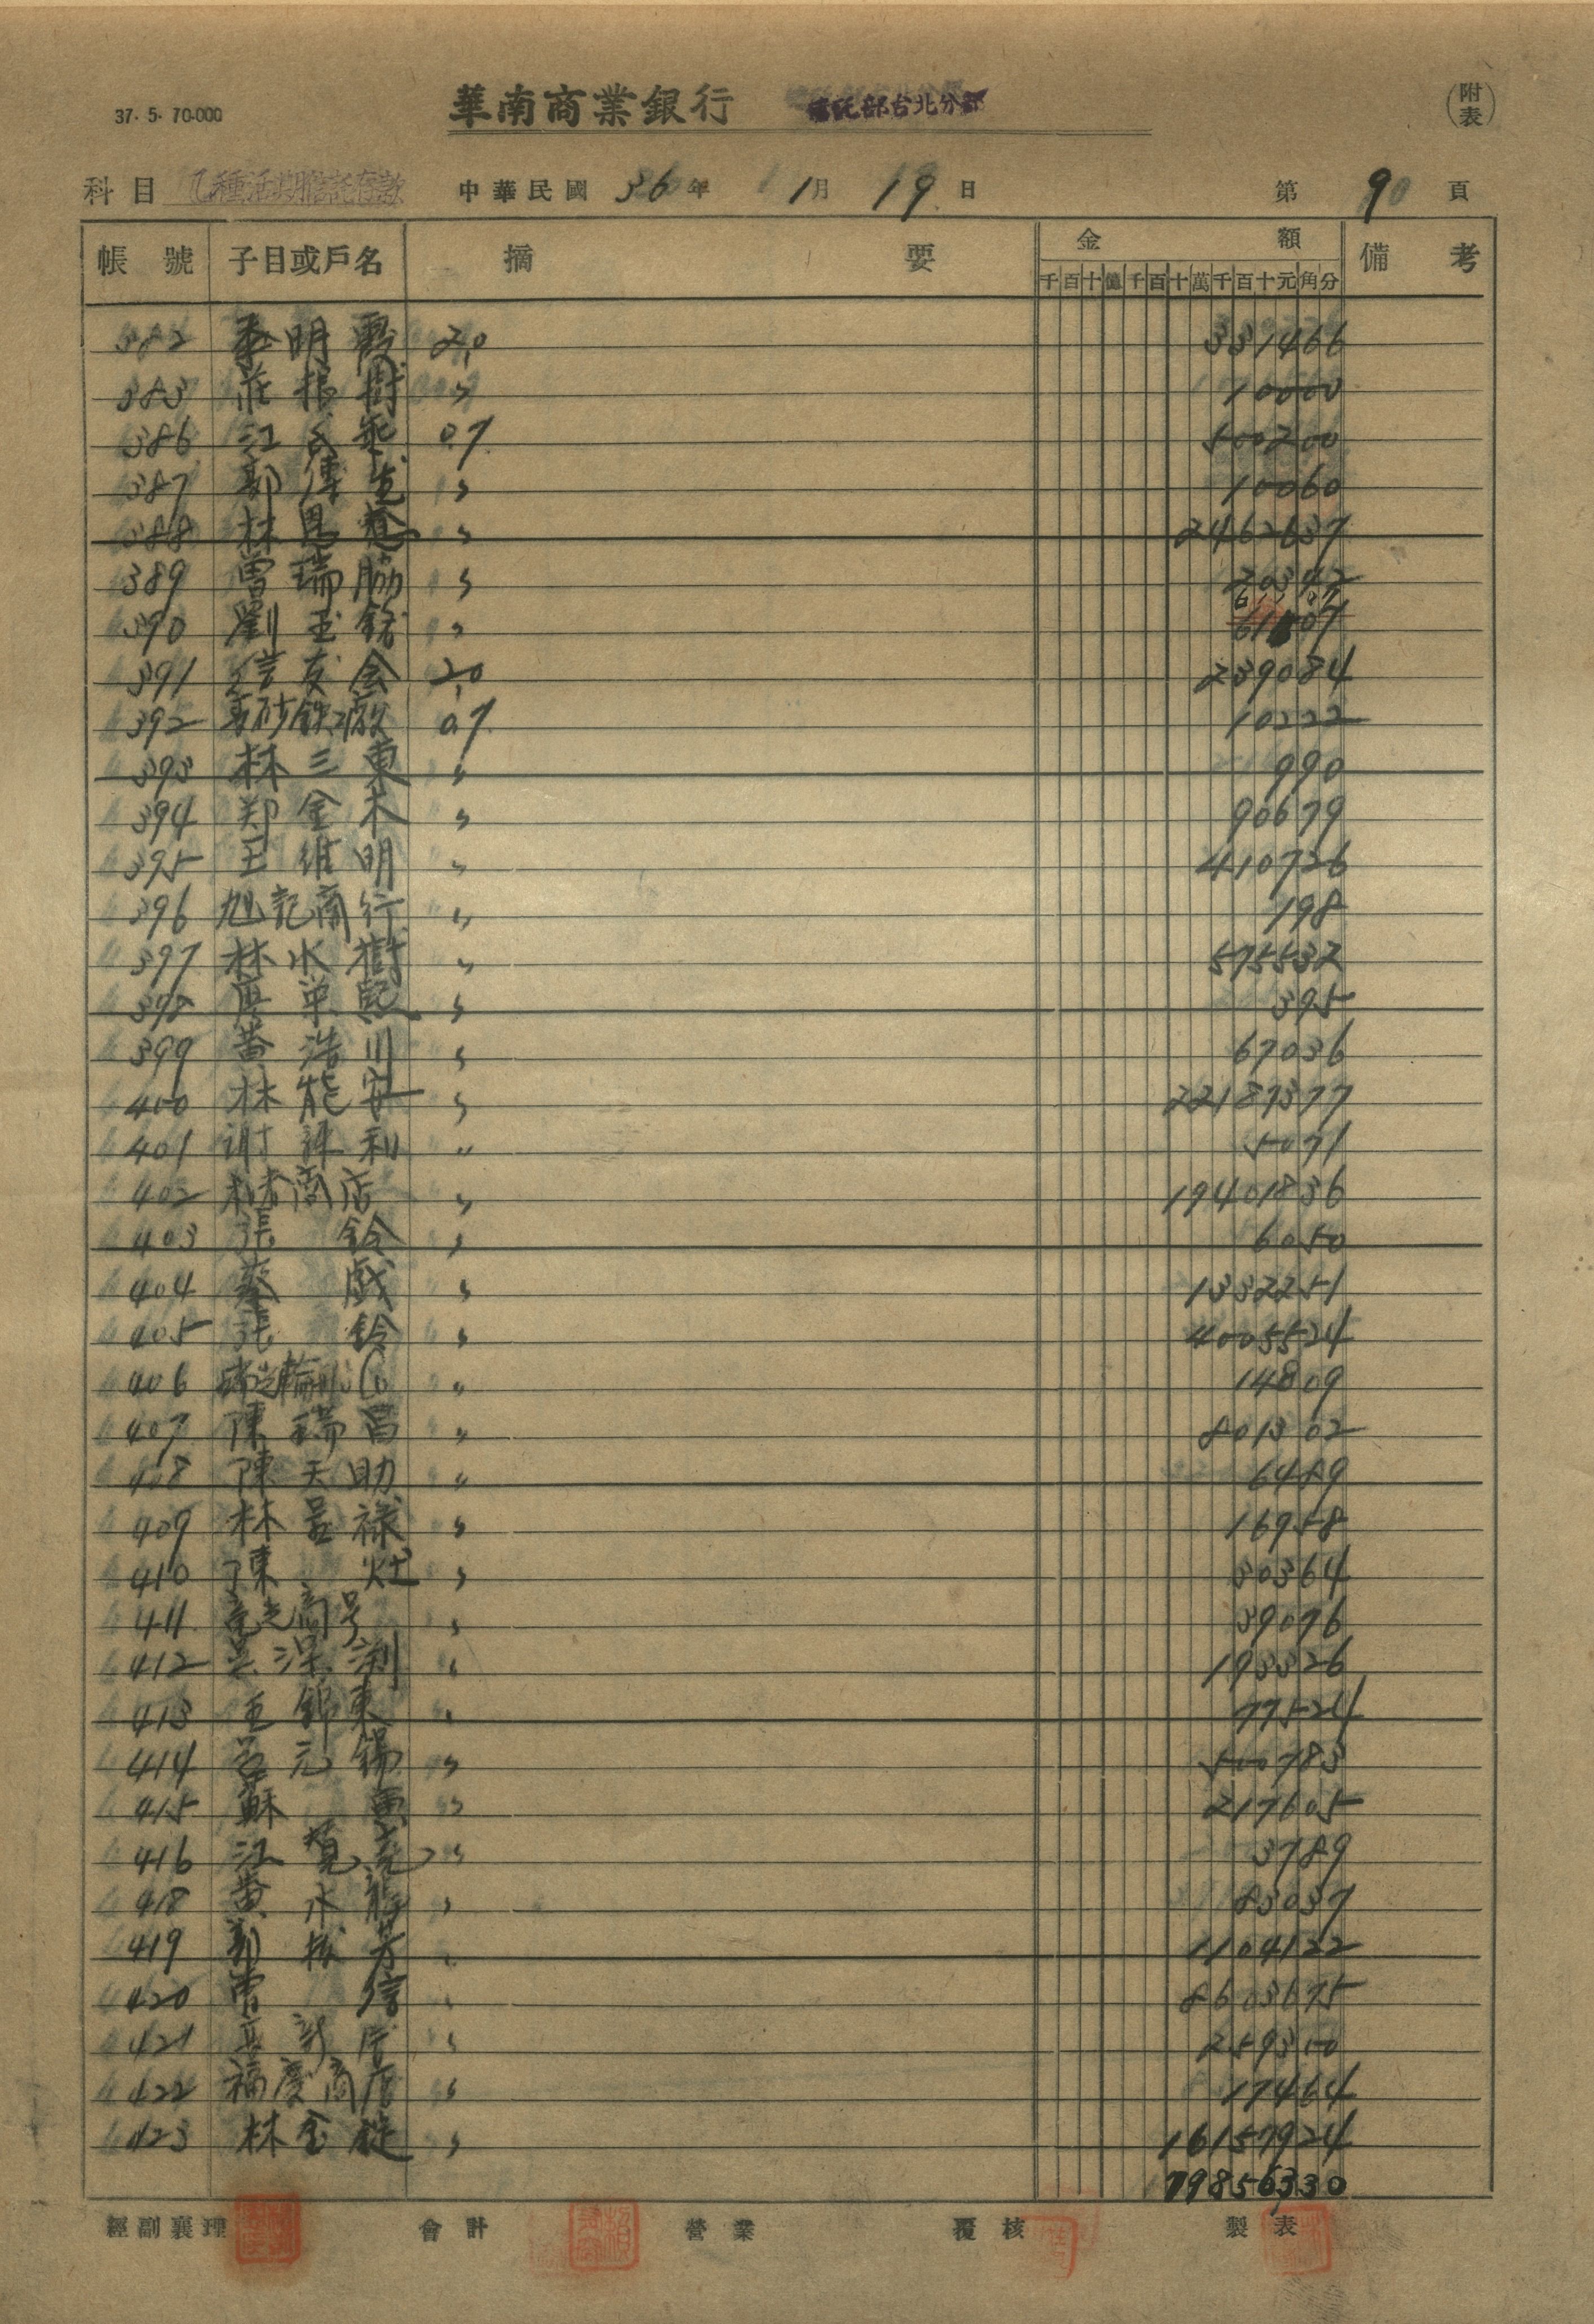 37. 5. 70.000 華南商業銀行 信託部台北分部 (附表)
科目 乙種活期信託存款 中華民國 36年 1月 19日 第 90 頁
帳號 子目或戶名 摘要 金額 備考
千百十億千百十萬千百十元角分
382 明霞 2.0 331466
383 莊根樹 〃 10000
386 江 0.7 500200
387 郭傳生 〃 10060
388 林恩 〃 2462637
389 曾瑞 〃 20342
390 劉玉 〃 61107
391 信友会 2.0 239084
392 砂鉄廠 0.7 10222
393 林三東 〃 990
394 郑金木 〃 90679
395 王維明 〃 410726
396 旭記商行 〃 198
397 林水樹 〃 575532
398 〃 395
399 黃浩川 〃 67036
400 林能安 〃 22187377
401 謝利 〃 5071
402 商店 〃 19401836
403 張鈴 〃 6050
404 蔡戲 〃 1332251
405 張鈴 〃 4005524
406 〃 14809
407 陳瑞昌 〃 801302
408 陳天助 〃 6489
409 林祿 〃 16958
410 陳灶 〃 30364
411 商号 〃 39076
412 吳深 〃 193326
413 王錦東 〃 77524
414 呂元錫 〃 500783
415 蘇 〃 217605
416 江 〃 3789
418 黃水龍 〃 83037
419 郭 〃 1104122
420 曾信 〃 8603675
421 〃 259310
422 福慶商店 〃 17464
423 林金錠 〃 16157924
79856330
經副襄理 會計 營業 覆核 製表